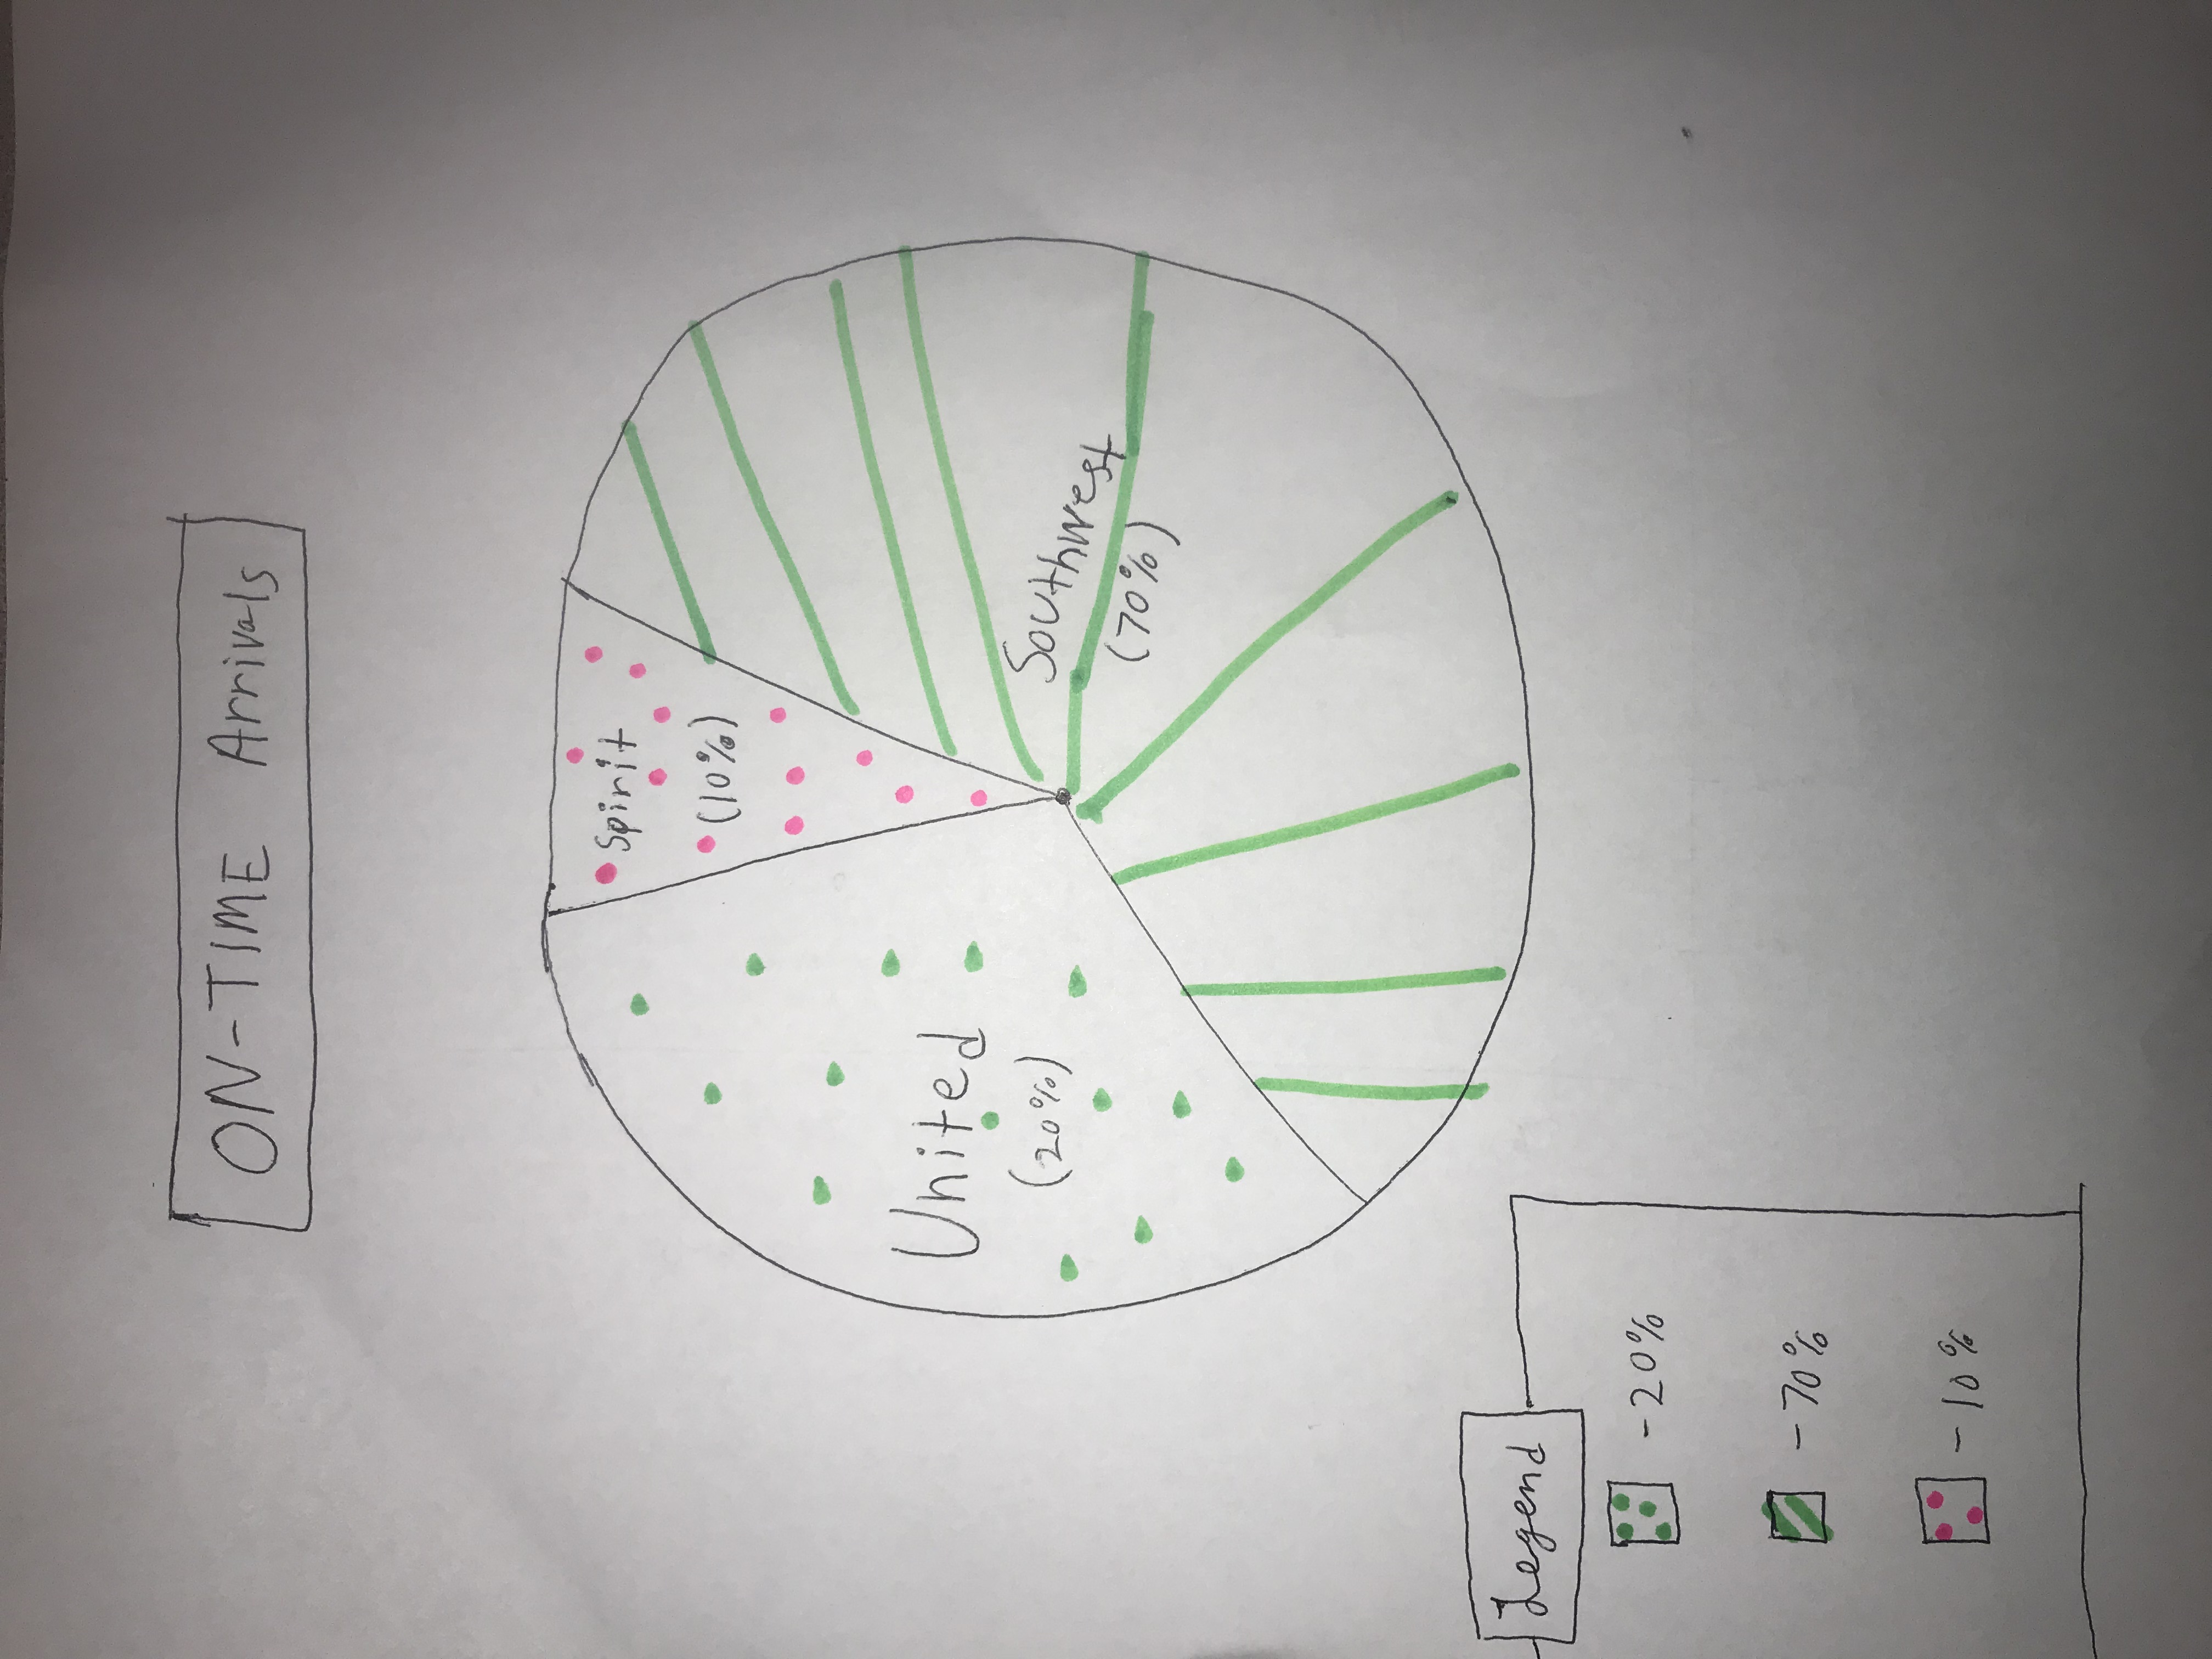 ON-TIME Arrivals
Spirit
(10%)
United
(20%)
Southwest
(70%)
Legend
-20%
-70%
-10%